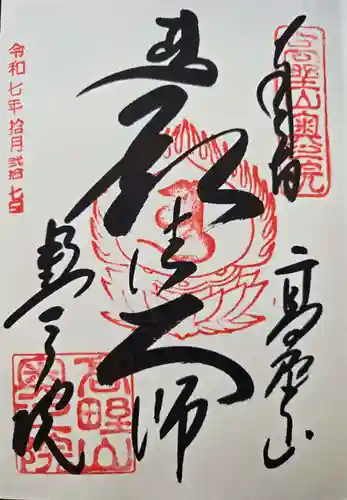 奉拝
高野山
弘法大師
奥之院
令和七年拾月弐拾七日
高野山奥之院
高野山奥之院